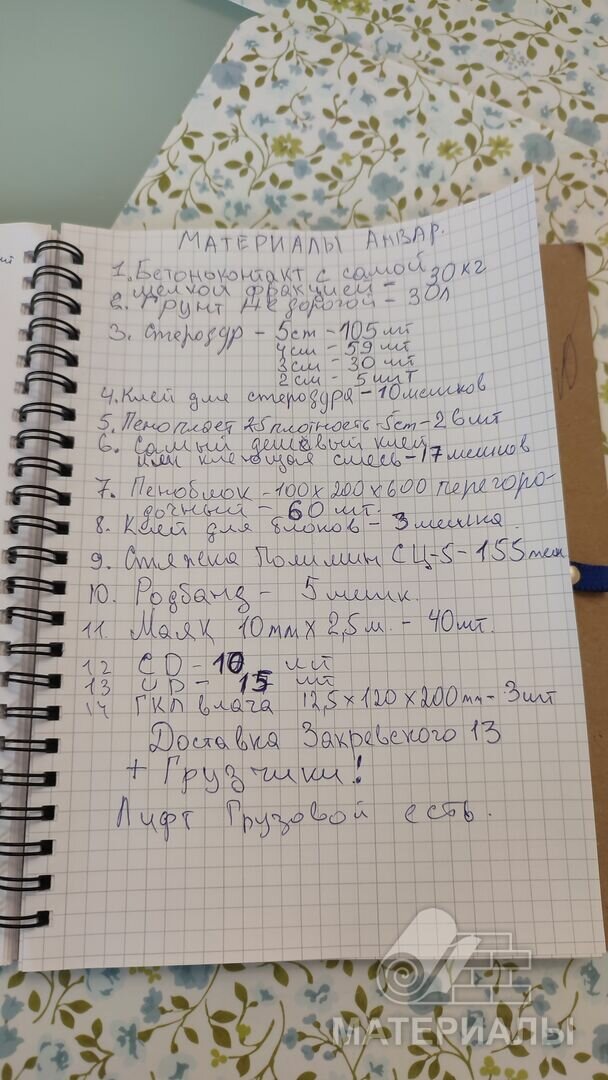 МАТЕРИАЛЫ АНВАР.
1. Бетоноконтакт с самой
мелкой фракцией = 30 кг
2. Грунт не дорогой = 30л
3. Стероздур - 5см - 105 шт
4см - 59 шт
3см - 30 шт
2см - 5 шт
4. Клей для стероздура - 10 мешков
5. Пеноплест 25 плотность - 5см - 26 шт
6. Самый дешёвый клей
или клеющая смесь - 17 мешков
7. Пеноблок - 100 х 200 х 600 перегоро-
дочный - 60 шт.
8. Клей для блоков - 3 мешка.
9. Стяжка Полимин СЦ-5 - 155 меш
10. Родбанд - 5 мешк.
11. Маяк 10mm x 2,5 м. - 40 шт.
12 CD - 10 шт
13 UD - 15 шт
14 ГКЛ влага 12,5 х 120 х 200mm - 3 шт
Доставка Закревского 13
+ Грузчики!
Лифт Грузовой есть.
МАТЕРИАЛЫ